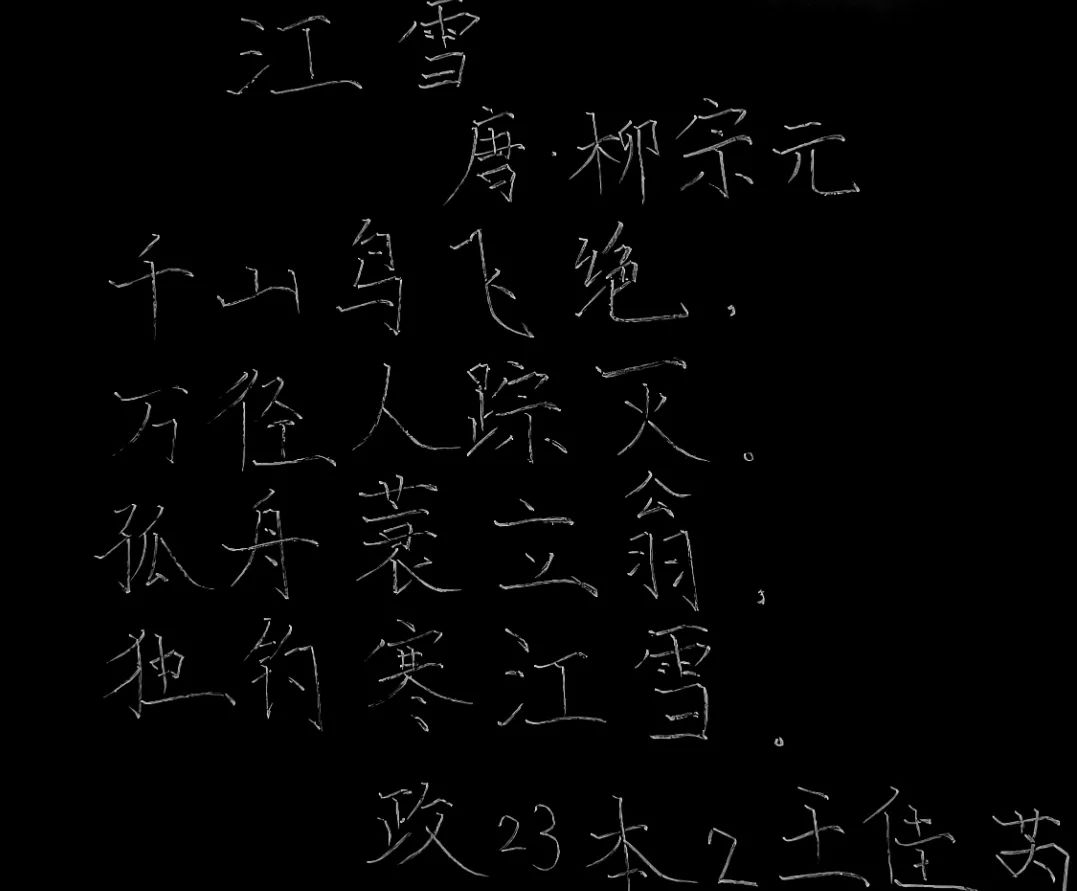 江雪
唐·柳宗元
千山鸟飞绝,
万径人踪灭。
孤舟蓑立翁,
独钓寒江雪。
政23本2王佳